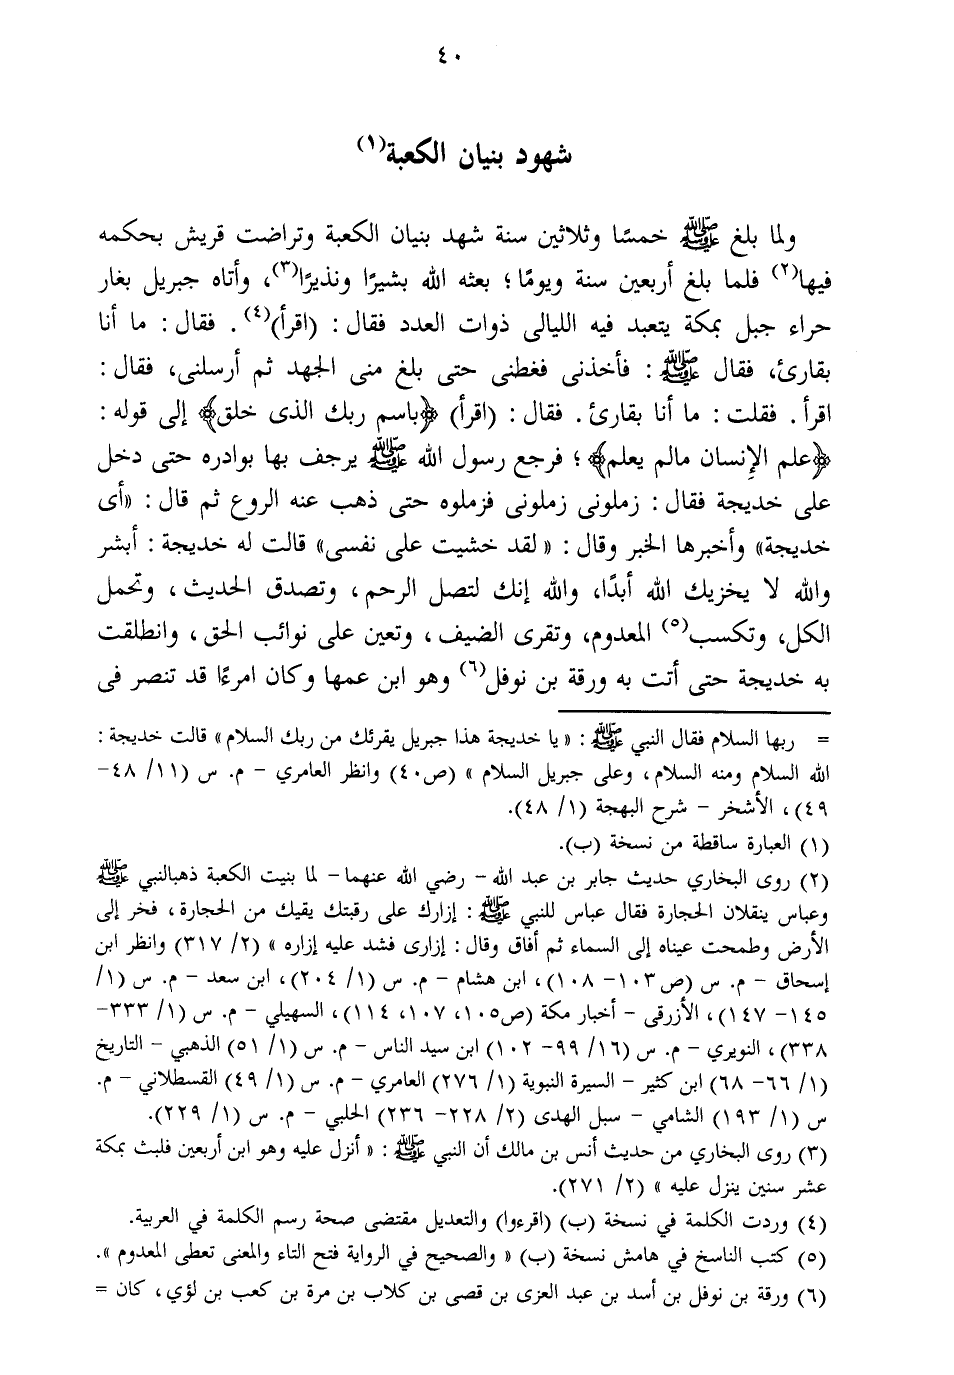 ٤٠
شهود بنيان الكعبة(١)
ولما بلغ ﷺ خمسًا وثلاثين سنة شهد بنيان الكعبة وتراضت قريش بحكمه
فيها(٢) فلما بلغ أربعين سنة ويومًا؛ بعثه الله بشيرًا ونذيرًا(٣)، وأتاه جبريل بغار
حراء جبل بمكة يتعبد فيه الليالى ذوات العدد فقال: (اقرأ)(٤). فقال: ما أنا
بقارئ، فقال ﷺ: فأخذنى فغطنى حتى بلغ منى الجهد ثم أرسلنى، فقال:
اقرأ. فقلت: ما أنا بقارئ. فقال: (اقرأ) ﴿باسم ربك الذى خلق﴾ إلى قوله:
﴿علم الإنسان مالم يعلم﴾؛ فرجع رسول الله ﷺ يرجف بها بوادره حتى دخل
على خديجة فقال: زملونى زملونى فزملوه حتى ذهب عنه الروع ثم قال: «أى
خديجة» وأخبرها الخبر وقال: « لقد خشيت على نفسى» قالت له خديجة: أبشر
والله لا يخزيك الله أبدًا، والله إنك لتصل الرحم، وتصدق الحديث، وتحمل
الكل، وتكسب(٥) المعدوم، وتقرى الضيف، وتعين على نوائب الحق، وانطلقت
به خديجة حتى أتت به ورقة بن نوفل(٦) وهو ابن عمها وكان امرءًا قد تنصر فى
= ربها السلام فقال النبي ﷺ: « يا خديجة هذا جبريل يقرئك من ربك السلام » قالت خديجة:
الله السلام ومنه السلام، وعلى جبريل السلام » (ص٤٠) وانظر العامري - م. س (١١/ ٤٨-
٤٩)، الأشخر - شرح البهجة (١/ ٤٨).
(١) العبارة ساقطة من نسخة (ب).
(٢) روى البخاري حديث جابر بن عبد الله - رضي الله عنهما- لما بنيت الكعبة ذهبالنبي ﷺ
وعباس ينقلان الحجارة فقال عباس للنبي ﷺ: إزارك على رقبتك يقيك من الحجارة، فخر إلى
الأرض وطمحت عيناه إلى السماء ثم أفاق وقال: إزارى فشد عليه إزاره » (٢/ ٣١٧) وانظر ابن
إسحاق - م. س (ص ١٠٣- ١٠٨)، ابن هشام - م. س (١/ ٢٠٤)، ابن سعد - م. س (١/
١٤٥- ١٤٧)، الأزرقى - أخبار مكة (ص١٠٥، ١٠٧، ١١٤)، السهيلي - م. س (١/ ٣٣٣-
٣٣٨)، النويري - م. س (١٦/ ٩٩- ١٠٢) ابن سيد الناس - م. س (١/ ٥١) الذهبي - التاريخ
(١/ ٦٦- ٦٨) ابن كثير - السيرة النبوية (١/ ٢٧٦) العامري - م. س (١/ ٤٩) القسطلاني - م.
س (١/ ١٩٣) الشامي - سبل الهدى (٢/ ٢٢٨- ٢٣٦) الحلبي - م. س (١/ ٢٢٩).
(٣) روى البخاري من حديث أنس بن مالك أن النبي ﷺ: « أنزل عليه وهو ابن أربعين فلبث بمكة
عشر سنين ينزل عليه » (٢/ ٢٧١).
(٤) وردت الكلمة في نسخة (ب) (اقرءوا) والتعديل مقتضى صحة رسم الكلمة في العربية.
(٥) كتب الناسخ في هامش نسخة (ب) « والصحيح في الرواية فتح التاء والمعنى تعطى المعدوم ».
(٦) ورقة بن نوفل بن أسد بن عبد العزى بن قصى بن كلاب بن مرة بن كعب بن لؤي، كان =